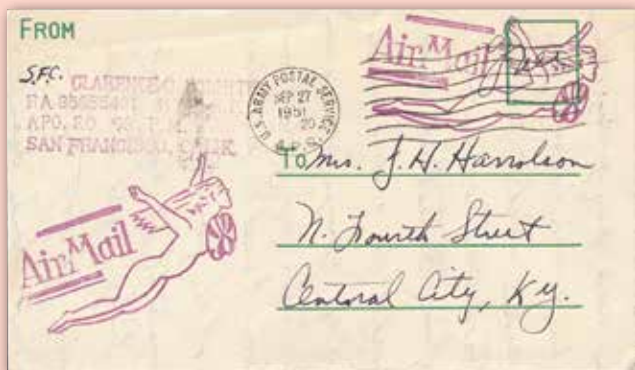 FROM
S.F.C.
CLARENCE C.
RA
APO. 20
SAN FRANCISCO, CALIF.
U.S. ARMY POSTAL SERVICE
SEP 27
1951
20
Air Mail
Free
To Mrs. J. H. Harrolson
N. Fourth Street
Centoral City, Ky.
Air Mail